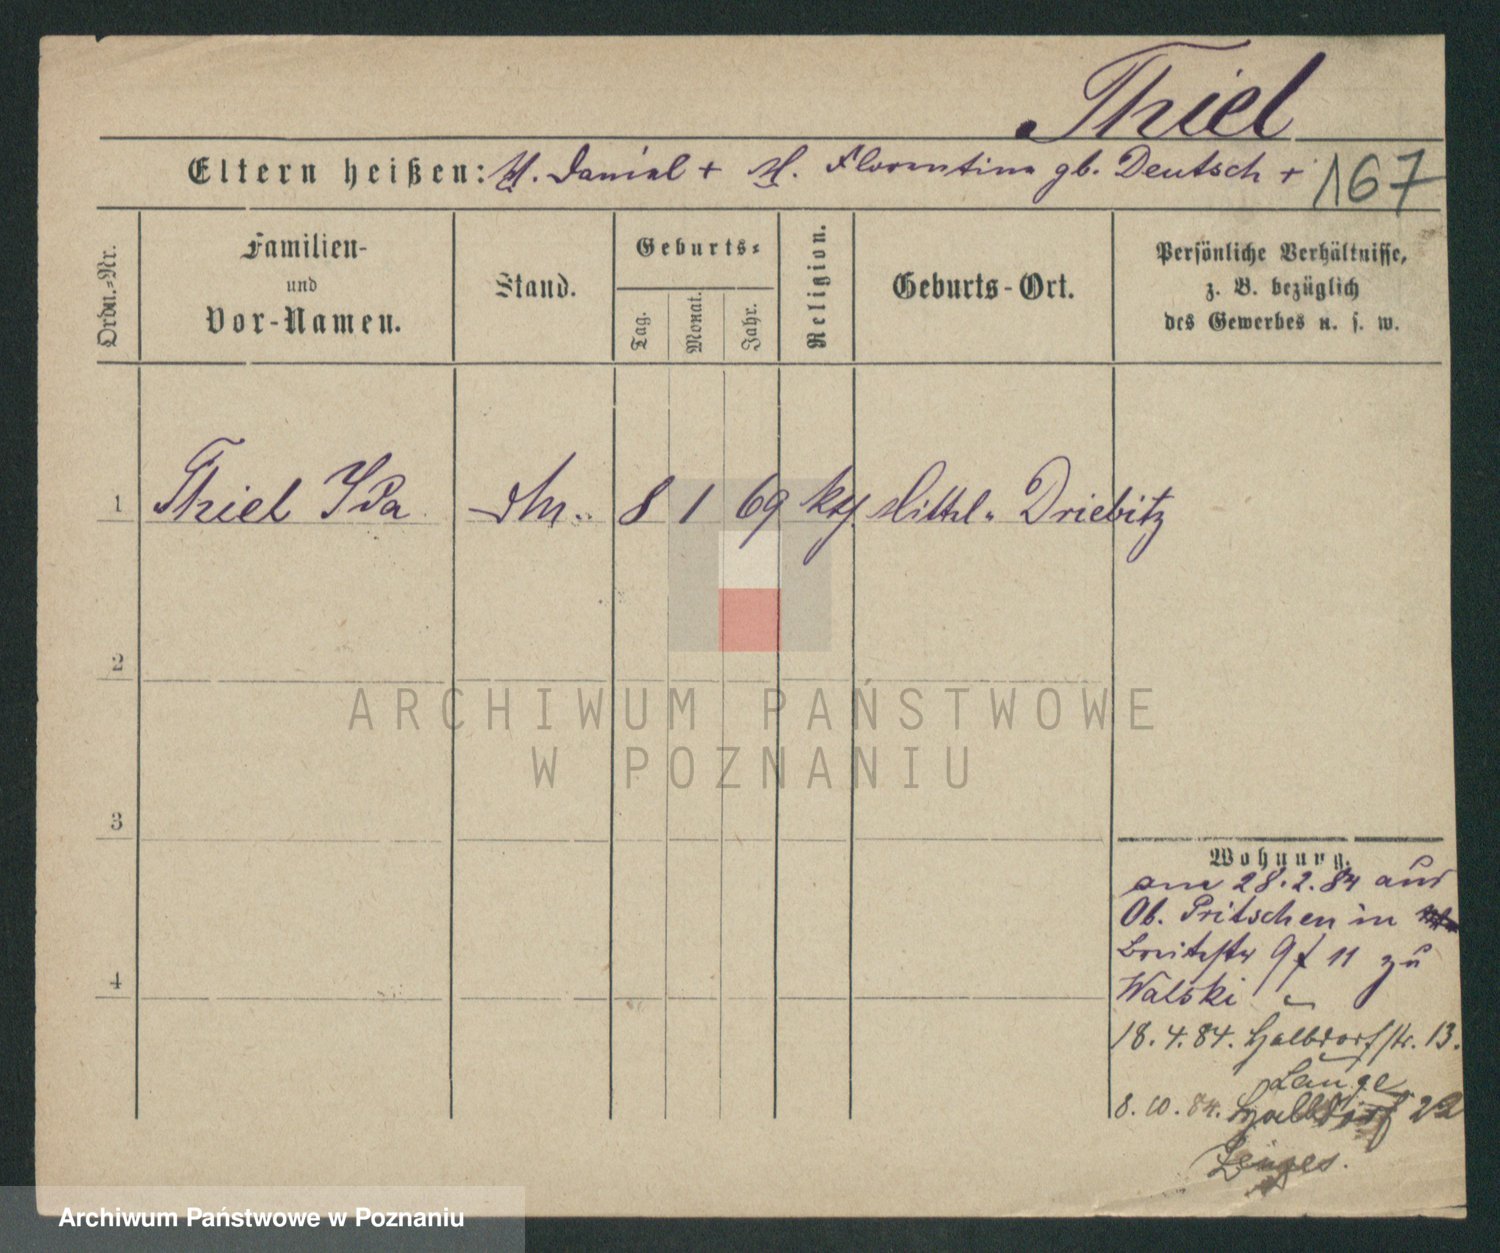 Thiel
Eltern heißen: M. Daniel + M. Florentine gb. Deutsch +
167
Ordn.-Nr.
Familien-
und
Vor-Namen.
Stand.
Geburts-
Tag.
Monat.
Jahr.
Religion.
Geburts-Ort.
Persönliche Verhältnisse,
z. B. bezüglich
des Gewerbes u. s. w.
1 Thiel Ida 8 1 69 Mittel- Driebitz
2
3
4
Wohnung.
28.2.84 aus
Ob. Pritschen in
Breitestr 9 11 zu
Walski
18.4.84. Halbdorfstr. 13.
Lange
8.10.84. Halbdorf 22
ARCHIWUM PAŃSTWOWE
W POZNANIU
Archiwum Państwowe w Poznaniu